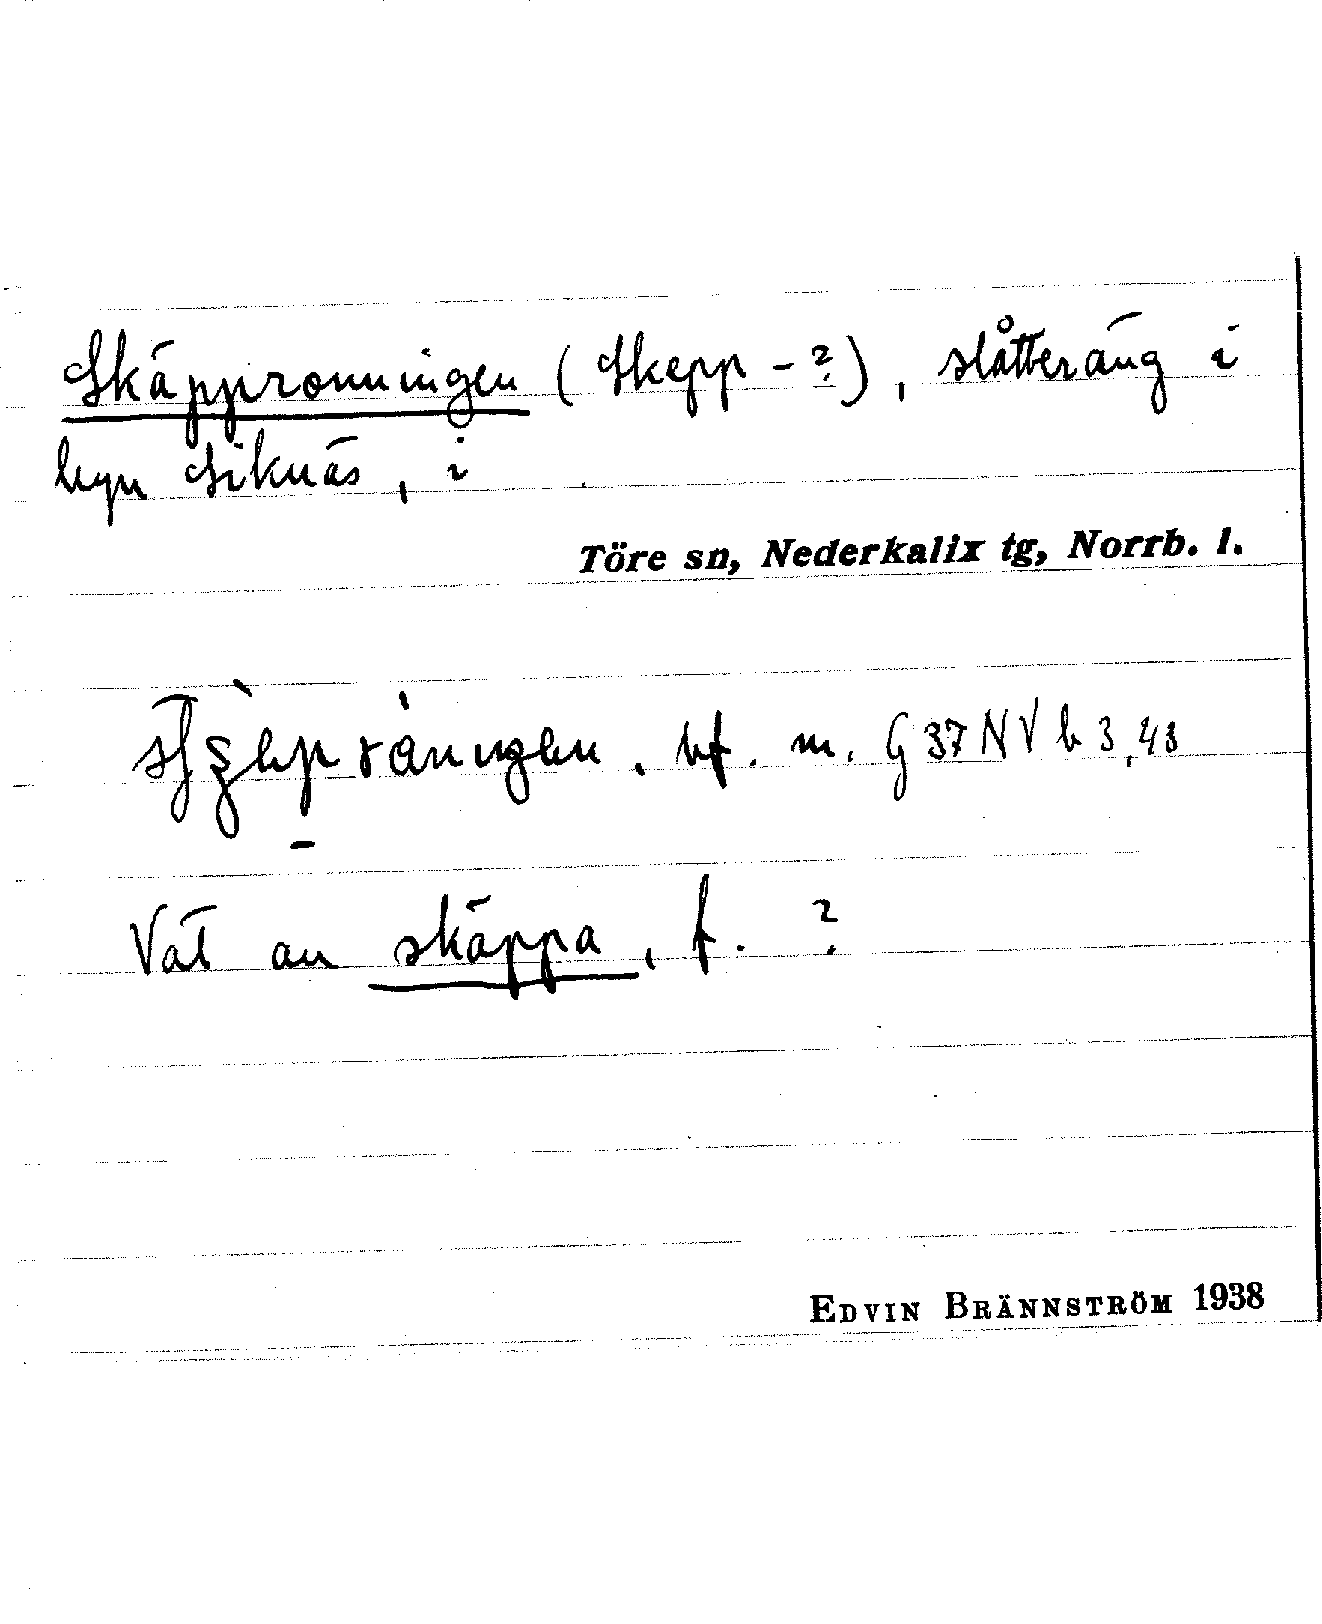 Skäpprönningen (Skepp-?), slåtteräng i
byn Siknäs, i
Töre sn, Nederkalix tg, Norrb. l.
bf. m. G 37 N V b 3,43
Vät an skäppa, f. ?
EDVIN BRÄNNSTRÖM 1938